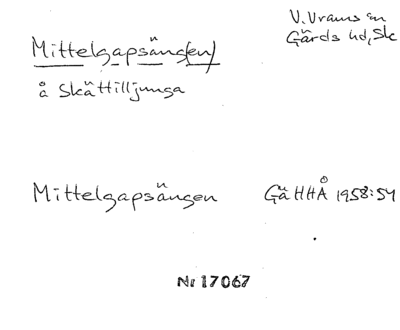 Mittelgapsäng(en)
V. Vrams sn
Gärds hd, Sk
å Skättilljunga
Mittelgapsängen GäHHÅ 1958:54
Nr 17067